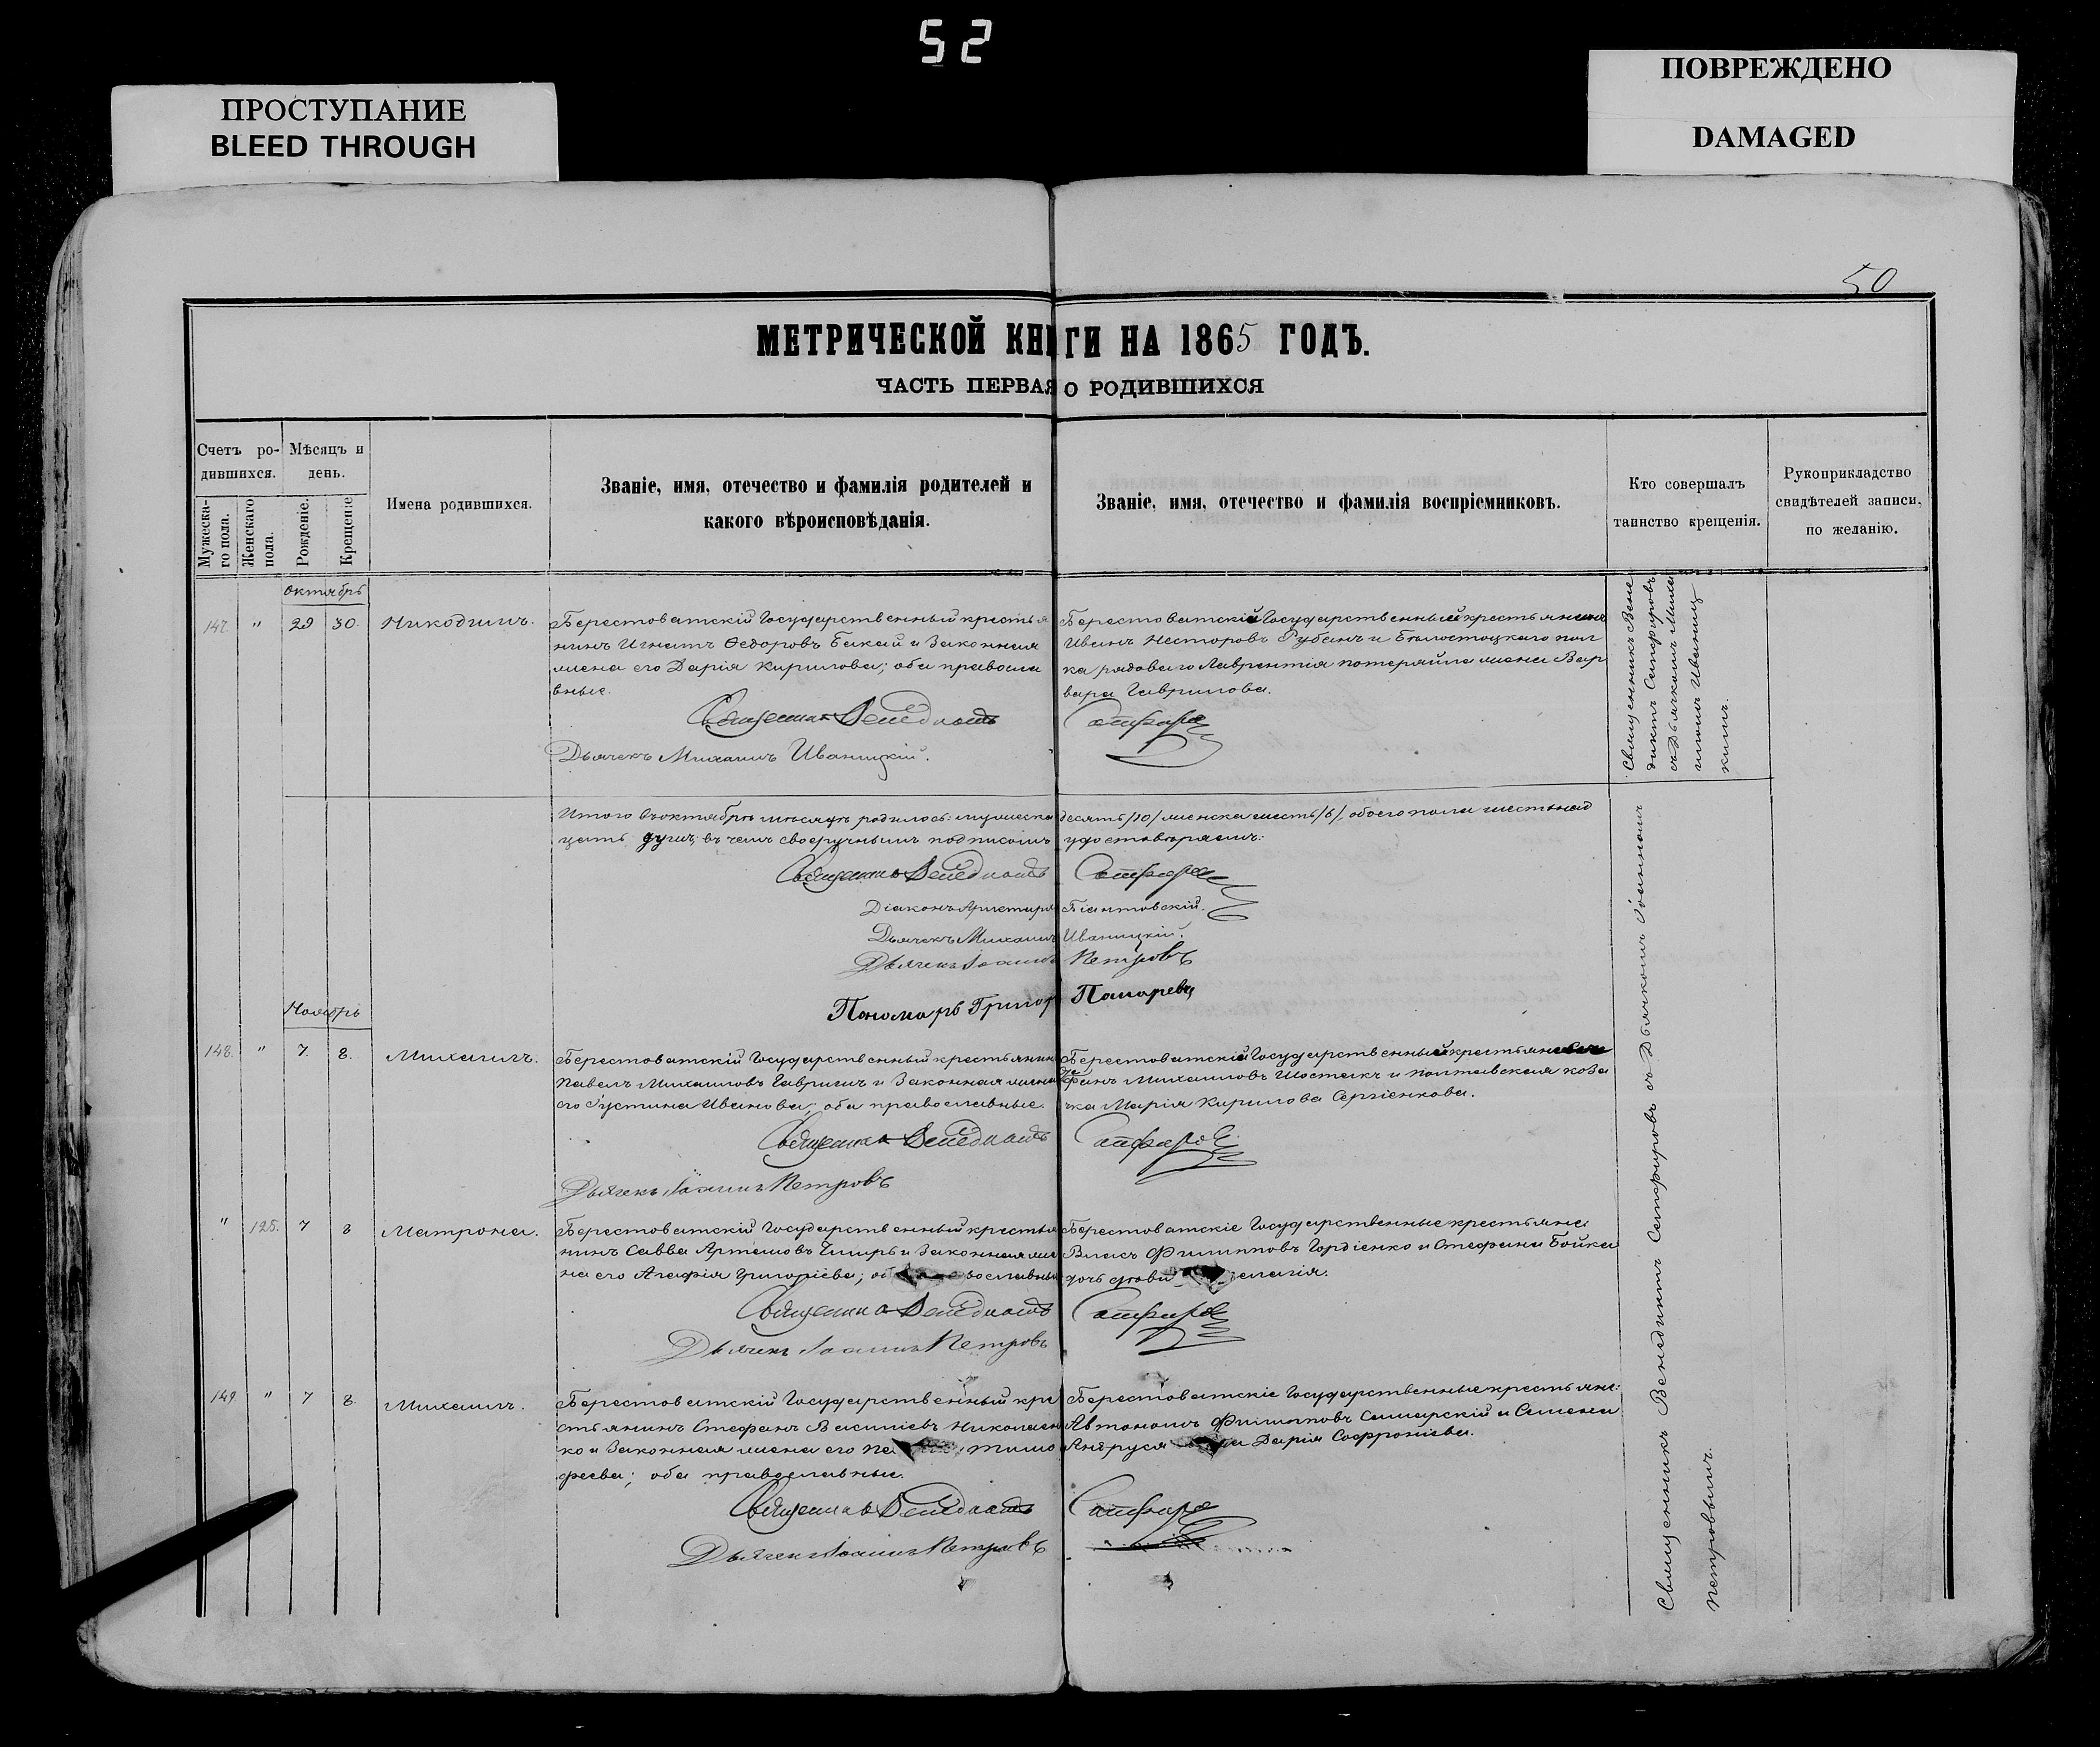 52
ПРОСТУПАНИЕ
BLEED THROUGH
ПОВРЕЖДЕНО
DAMAGED
50
МЕТРИЧЕСКОЙ КНИГИ НА 1865 ГОДЪ.
ЧАСТЬ ПЕРВАЯ О РОДИВШИХСЯ
Счетъ ро-
дившихся.
Мужеска-
го пола.
Женскаго
пола.
Мѣсяцъ и
день.
Рожденіе.
Крещеніе
Имена родившихся.
Званіе, имя, отечество и фамилія родителей и
какого вѣроисповѣданія.
Званіе, имя, отечество и фамилія воспріемниковъ.
Кто совершалъ
таинство крещенія.
Рукоприкладство
свидѣтелей записи,
по желанію.
Октябрь
147. " 29 30. Никодимъ.
Берестоватскій Государственный крестья
нинъ Игнатъ Ѳедоровъ Бакай и Законная
жена его Дарія Кирилова; оба правосла
вные.
Священникъ Венедиктъ
Дьячекъ Михаилъ Иваницкій.
Берестоватскій Государственный крестьянинъ
Иванъ Несторовъ Рубанъ и Бѣлостоцкаго пол
ка рядоваго Лаврентія Потеряйла жена Вар
вара Гаврилова.
Сапфировъ
Священникъ Вене
диктъ Сапфировъ
съ Дьячкомъ Миха
иломъ Иваниц
кимъ.
Итого въ октябрѣ мѣсяцѣ родилось: мужеска десять /10/ женска шесть /6/, обоего пола шестьнад
цать душъ; въ чемъ своеручнымъ подписомъ удостовѣряемъ:
Священникъ Венедиктъ Сапфировъ
Діаконъ Піантовскій.
Дьячекъ Михаилъ Иваницкій.
Дьячекъ Іоаннъ Петровъ
Пономарь Григор Пономаревъ
Ноябрь
148. " 7. 8. Михаилъ.
Берестоватскій Государственный крестьянинъ
Павелъ Михаиловъ Гавришъ и Законная жена
его Густина Иванова; оба православные.
Священникъ Венедиктъ
Дьячекъ Іоаннъ Петровъ
Берестоватскій Государственный крестьянинъ
Михаиловъ Шостакъ и Полтавская коза
чка Марія Кирилова Сергіенкова.
Сапфировъ
" 125. 7 8 Матрона.
Берестоватскій Государственный крестья
нинъ Савва Артемовъ и Законная же
на его Агафія Григоріева; вославны
Священникъ Венедиктъ
Дьячекъ Іоаннъ Петровъ
Берестоватскіе Государственные крестьяне:
Власъ Филипповъ Гордіенко и Стефана Бойка
дочь лагія.
Сапфировъ
149. " 7 8. Михаилъ.
Берестоватскій Государственный кре
стьянинъ Стефанъ Василіевъ Николаен
ко и Законная жена его Тимо
феева; оба православные.
Священникъ Венедиктъ
Дьячекъ Іоаннъ Петровъ
Берестоватскіе Государственные крестьяне:
Автономъ Филипповъ Самарскій и Семена
Андруся Дарія Софроніева.
Сапфировъ
Священникъ Венедиктъ Сапфировъ съ Дьячкомъ Іоанномъ
Петровымъ.